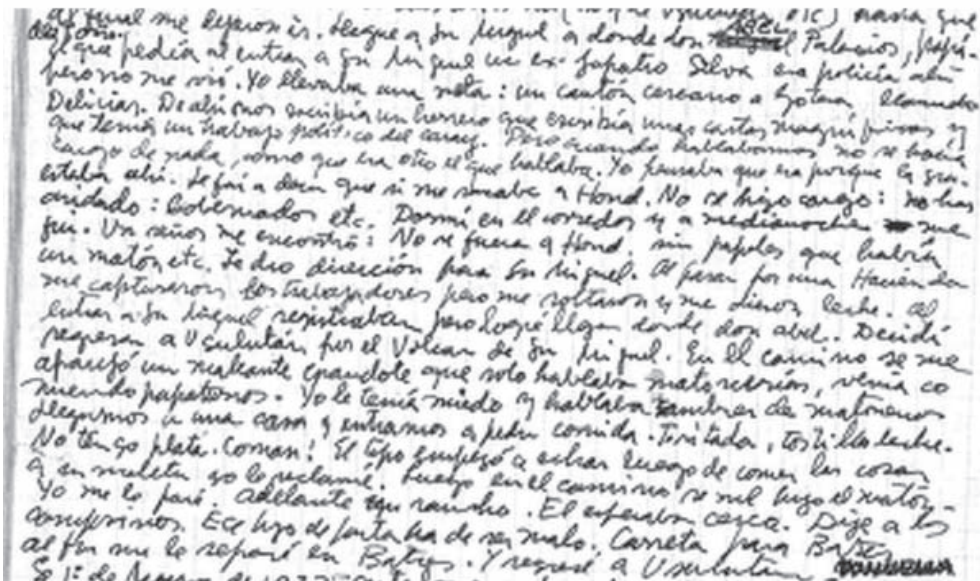 al final me dejaron ir. Llegué a Sn Miguel a donde don Abel Palacios,
El que pedía al entrar a Sn Miguel un ex-zapatro Silva era policía ahí
pero no me vió. Yo llevaba una meta: un cantón cercano a Gotera llamado
Delicias. De ahí nos escribía un herrero que escribía unas cartas y
que tenía un trabajo político del caray. Pero cuando hablábamos no se hacía
cargo de nada, como que era otro el que hablaba. Yo pensaba que era porque la
estaba ahí. Le fuí a decir que si me sacaba a Hond. No se hizo cargo: no has
cuidado: Gobernador etc. Dormí en el corredor y a medianoche me
fui. Un señor me encontró: No se fuera a Hond. sin papeles que habría
un matón etc. Le dio dirección para Sn Miguel. Al pasar por una Hacienda
me capturaron los trabajadores pero me soltaron y me dieron leche. Al
entrar a Sn Miguel registraban pero logré llegar donde don Abel. Decidí
regresar a Usulután por el Volcán de Sn Miguel. En el camino se me
apareció un maleante grandote que solo hablaba matonerías, venía co
miendo papaturros. Yo le tenía miedo y hablaba también de matonerías
Llegamos a una casa y entramos a pedir comida. tortillas leche.
No tengo plata. Coman! El tipo empezó a echar luego de comer las cosas
a su maleta yo le reclamé. Luego en el camino se me hizo el matón.
Yo me le paré. Adelante un rancho. El esperaba cerca. Dije a los
campesinos. Ece hijo de puta ha de ser malo. Carreta para Batres
al fin me le separé en Batres. Y regresé a Usulután